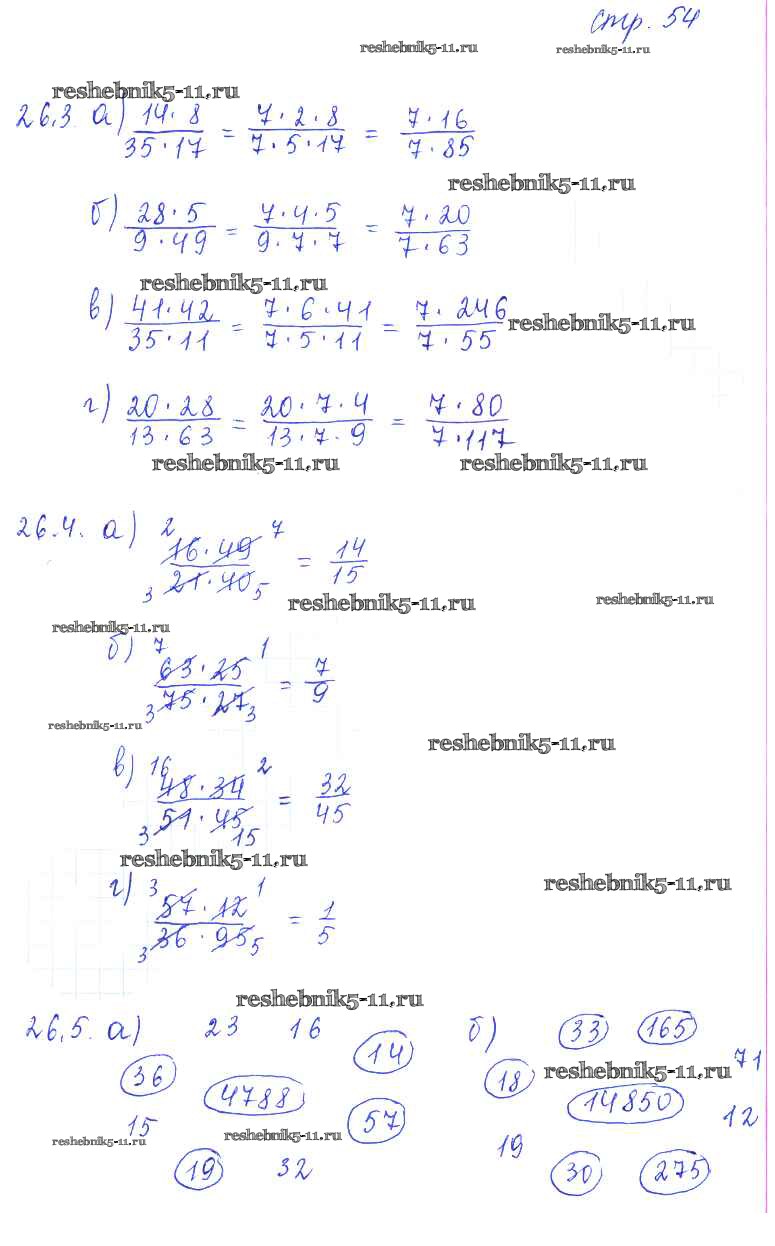 стр. 54
reshebnik5-11.ru reshebnik5-11.ru
reshebnik5-11.ru
26.3 а) 14·8/35·17 = 7·2·8/7·5·17 = 7·16/7·85
reshebnik5-11.ru
б) 28·5/9·49 = 7·4·5/9·7·7 = 7·20/7·63
reshebnik5-11.ru
в) 41·42/35·11 = 7·6·41/7·5·11 = 7·246/7·55 reshebnik5-11.ru
г) 20·28/13·63 = 20·7·4/13·7·9 = 7·80/7·117
reshebnik5-11.ru reshebnik5-11.ru
26.4. а) 2 7
16·49/21·40 = 14/15
3 5
reshebnik5-11.ru reshebnik5-11.ru
reshebnik5-11.ru
б) 7 1
63·25/75·27 = 7/9
3 3
reshebnik5-11.ru
reshebnik5-11.ru
в) 16 2
48·34/51·45 = 32/45
3 15
reshebnik5-11.ru
г) 3 1
57·12/36·95 = 1/5
3 5
reshebnik5-11.ru
reshebnik5-11.ru
26.5. а) 23 16 б) 33 165
14 71
36 18 reshebnik5-11.ru
4788 14850
15 57 12
reshebnik5-11.ru reshebnik5-11.ru 19
19 32 30 275